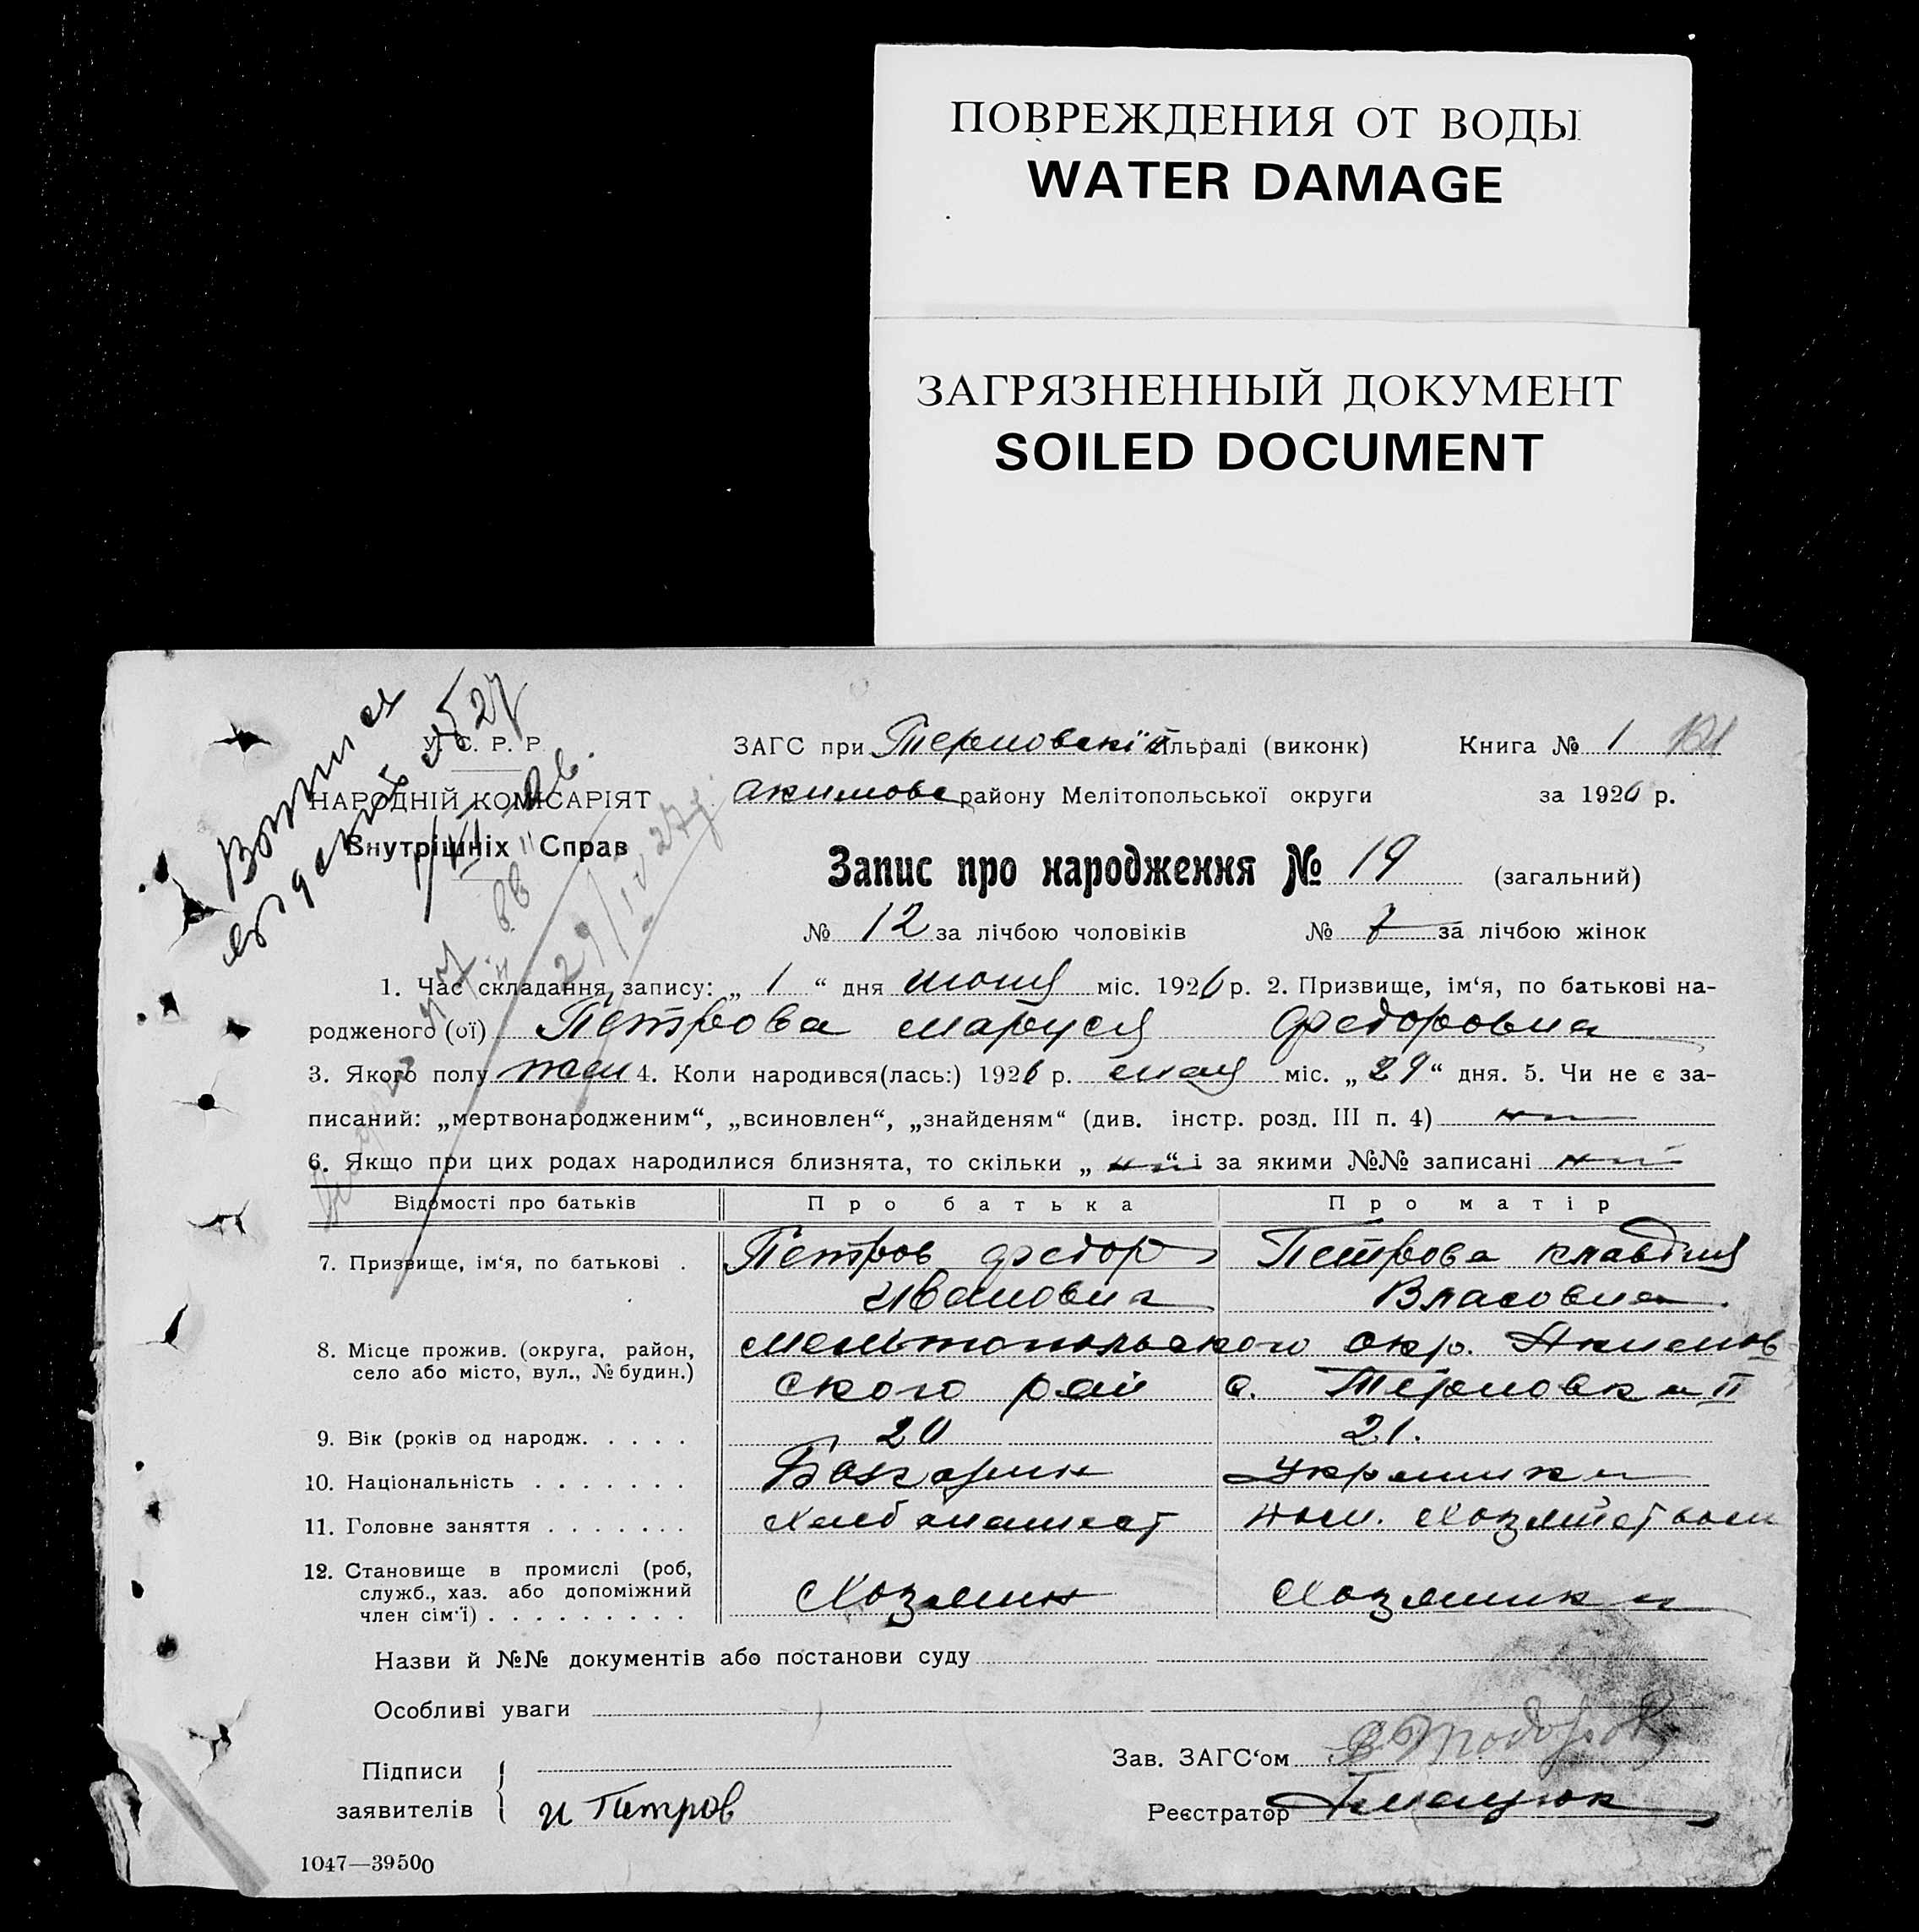 ПОВРЕЖДЕНИЯ ОТ ВОДЫ
WATER DAMAGE
ЗАГРЯЗНЕННЫЙ ДОКУМЕНТ
SOILED DOCUMENT
У. С. Р. Р.
НАРОДНІЙ КОМІСАРІЯТ
Внутрішніх Справ
ЗАГС при Терновскій сільраді (виконк) Книга № 1 121
Акимовс району Мелітопольської округи за 1926 р.
Запис про народження № 19 (загальний)
№ 12 за лічбою чоловіків № 7 за лічбою жінок
1. Час складання запису: „ 1 “ дня июня міс. 1926 р. 2. Призвище, ім‘я, по батькові на-
родженого (ої) Петрова Маруся Федоровна
3. Якого полу жен 4. Коли народився(лась:) 1926 р. мая міс. „ 29 “ дня. 5. Чи не є за-
писаний: „мертвонародженим“, „всиновлен“, „знайденям“ (див. інстр. розд. III п. 4)
6. Якщо при цих родах народилися близнята, то скільки „ “ і за якими №№ записані
Відомості про батьків Про батька Про матір
7. Призвище, ім‘я, по батькові . Петров Федор Петрова Клавдия
Иванович Власовна.
8. Місце прожив. (округа, район, Мелитопольского окр. Акимов
село або місто, вул., № будин.) ского рай с. Терновка II
9. Вік (років од народж. . . . . 20 21.
10. Національність . . . . . . . Болгарин Украинка
11. Головне заняття . . . . . . . Хлебопашест дом. Хозяйством
12. Становище в промислі (роб,
служб., хаз. або допоміжний Хозяин Хозяинка
член сім‘ї) . . . . . . . . .
Назви й №№ документів або постанови суду
Особливі уваги
Зав. ЗАГС‘ом Тодоров
Підписи
заявителів и Питров Реєстратор
1047—39500